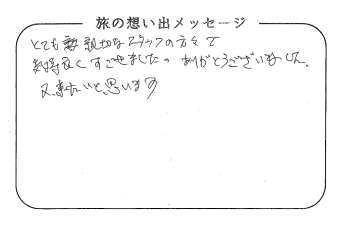 旅の想い出メッセージ
とても親切なスタッフの方々で
気持良くすごせました。ありがとうございました。
又、来たいと思います